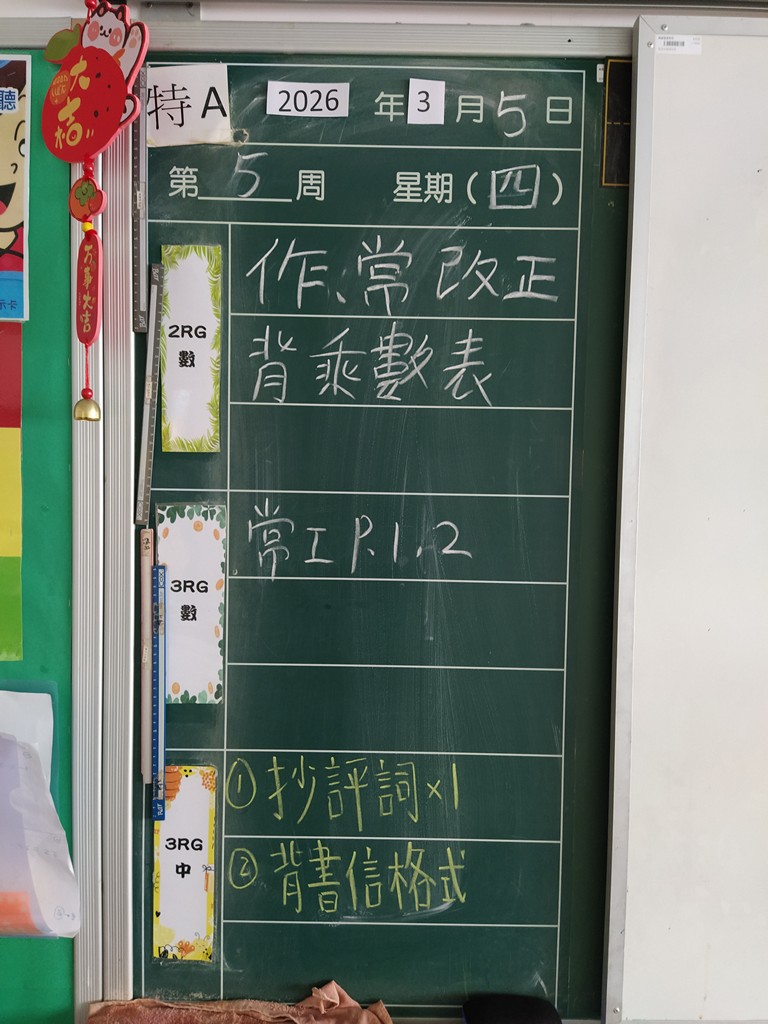 大吉
万事大吉
聽
特A 2026 年 3 月 5 日
第 5 周 星期(四)
2RG
數
作、常改正
背乘數表
3RG
數
常工 P.1.2
3RG
中
①抄評詞×1
②背書信格式